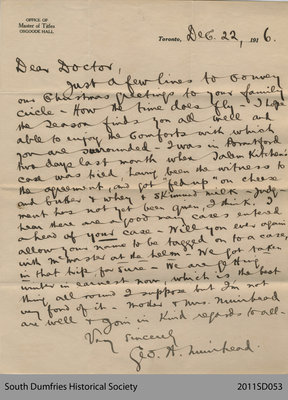 OFFICE OF
Master of Titles
OSGOODE HALL
Toronto, Dec. 22, 1916.
Dear Doctor,
Just a few lines to convey
our Christmas greetings to your family
circle - How the time does fly - I hope
the season finds you all well and
able to enjoy the comforts with which
you are surrounded - I was in Brantford
two days last month when Kitchen's
case was tried, having been the witness to
the agreement, and got fed up on cheese
and butter & whey & skimmed milk - Judg-
ment has not yet been given, I think. I
hear there are a good many cases entered
ahead of your case - Will you ever again
allow your name to be tagged on to a case,
with at the helm - We got taken
in that trip, for sure - We are getting
winter in earnest now, which is the best
thing all round I suppose but I'm not
very fond of it - Mother & Mrs. Muirhead
are well & join in kind regards to all -
Very Sincerely
Geo. A. Muirhead.
South Dumfries Historical Society
2011SD053